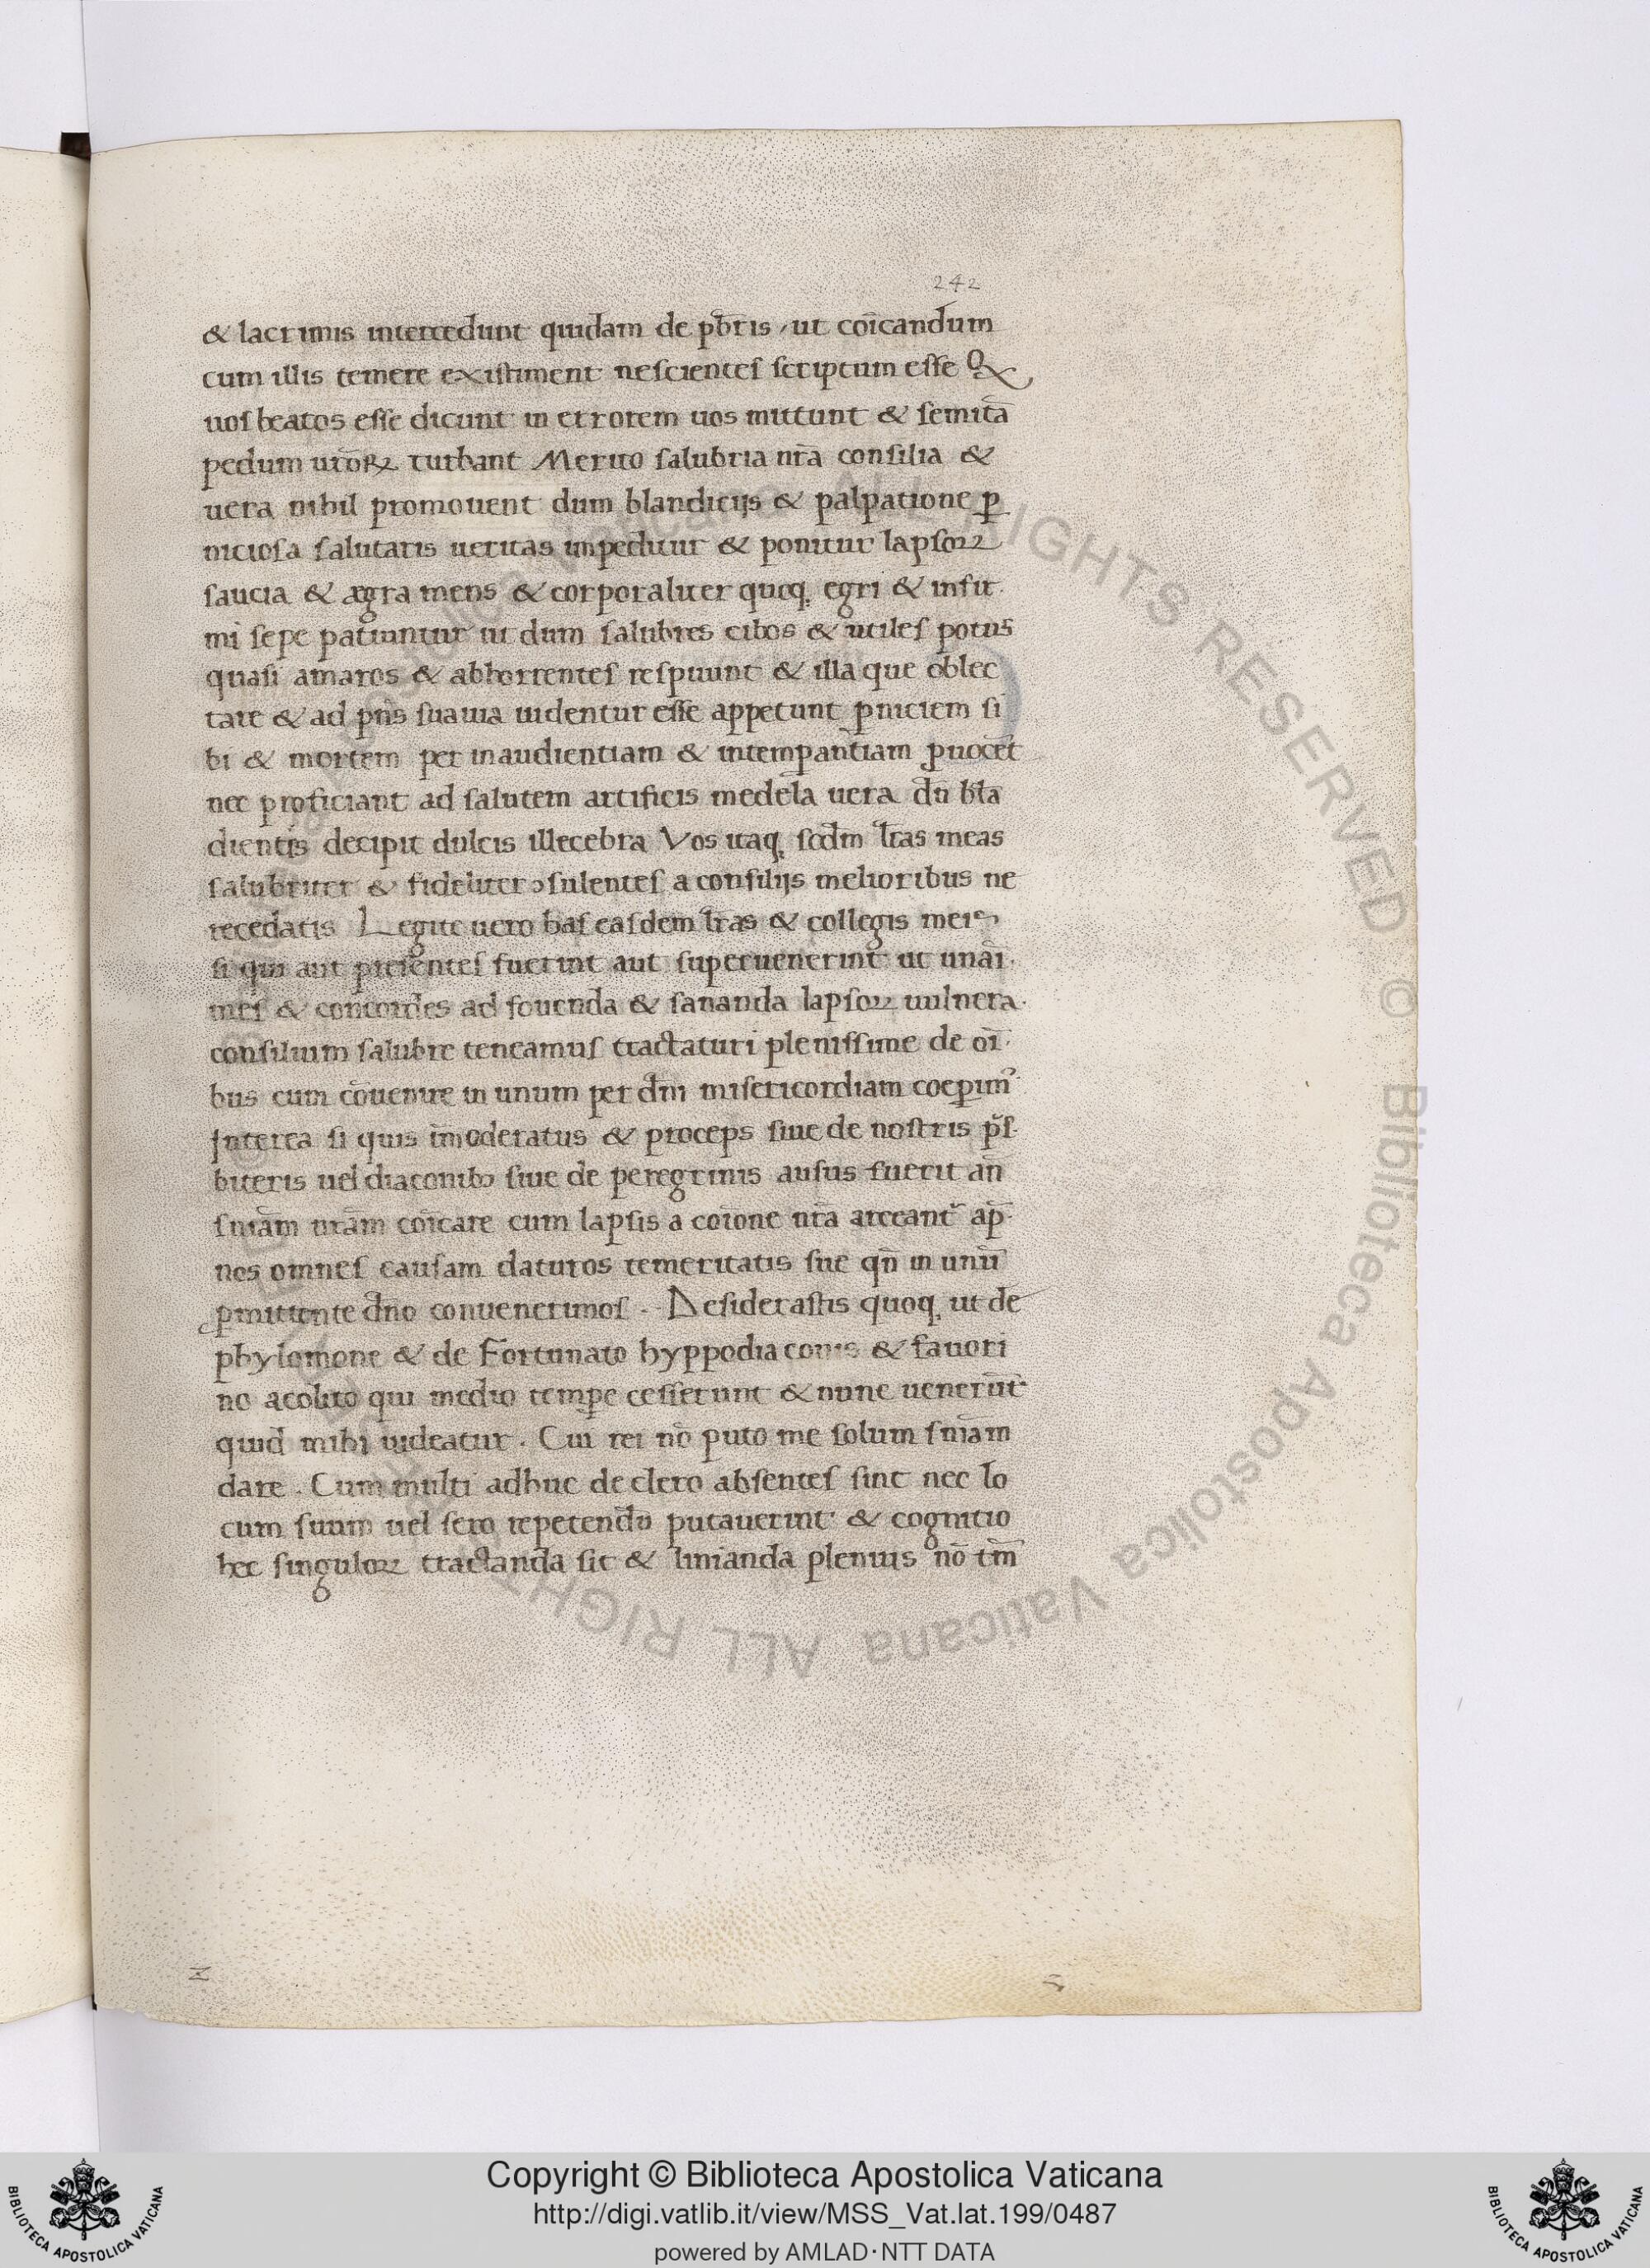 242
& lacrimis intercedunt quidam de pb̄ris, ut coīcandum
cum illis temere existiment nescientes scriptum esse Q
uos beatos esse dicunt in errorem uos mittunt & semitā
pedum ur̄oꝝ turbant Merito salubria nr̄a consilia &
uera nihil promouent dum blandicijs & palpatione ꝑ
niciosa salutaris ueritas impeditur & ponitur lapsoꝝ
saucia & ægra mens & corporaliter quoqꝫ egri & infir
mi sepe patiuntur ut dum salubres cibos & utiles potus
quasi amaros & abhorrentes respuunt & illa que oblec
tare & ad pn̄s suauia uidentur esse appetunt ꝑniciem si
bi & mortem per inaudientiam & intemꝑantiam ꝓuocēt
nec proficiant ad salutem artificis medela uera dū blā
dientis decipit dulcis illecebra Vos itaqꝫ scd̄m lr̄as meas
salubriter & fideliter ꝯsulentes a consilijs melioribus ne
recedatis Legite uero has easdem lr̄as & collegis meis
si qui aut presentes fuerint aut superuenerint ut unāi
mes & concordes ad fouenda & sananda lapsoꝝ uulnera.
consilium salubre teneamus tractaturi plenissime de oī
bus cum cōuenire in unum per dn̄i misericordiam coeꝑim᾿
Interea si quis īmoderatus & proceps siue de nostris p̄s
biteris uel diaconibꝫ siue de peregrinis ausus fuerit an̄
sniām nr̄am coīcare cum lapsis a coīone nr̄a arceant᷑ ap̄
nos omnes causam daturos temeritatis sue qn̄ in unū
ꝑmittente dn̄o conuenerimos. Desiderastis quoqꝫ ut de
phylomone & de Fortunato hyppodiaconis & fauori
no acolito qui medio temꝑe cesserunt & nunc uenerūt
quid mihi uideatur. Cui rei nō puto me solum sniām
dare. Cum multi adhuc de clero absentes sint nec lo
cum suum uel sero repetendū putauerint & cognitio
hec singuloꝝ tractanda sit & limanda plenius nō tm̄
Copyright © Biblioteca Apostolica Vaticana
http://digi.vatlib.it/view/MSS_Vat.lat.199/0487
powered by AMLAD·NTT DATA
BIBLIOTECA APOSTOLICA VATICANA
BIBLIOTECA APOSTOLICA VATICANA
© Biblioteca Apostolica Vaticana ALL RIGHTS RESERVED